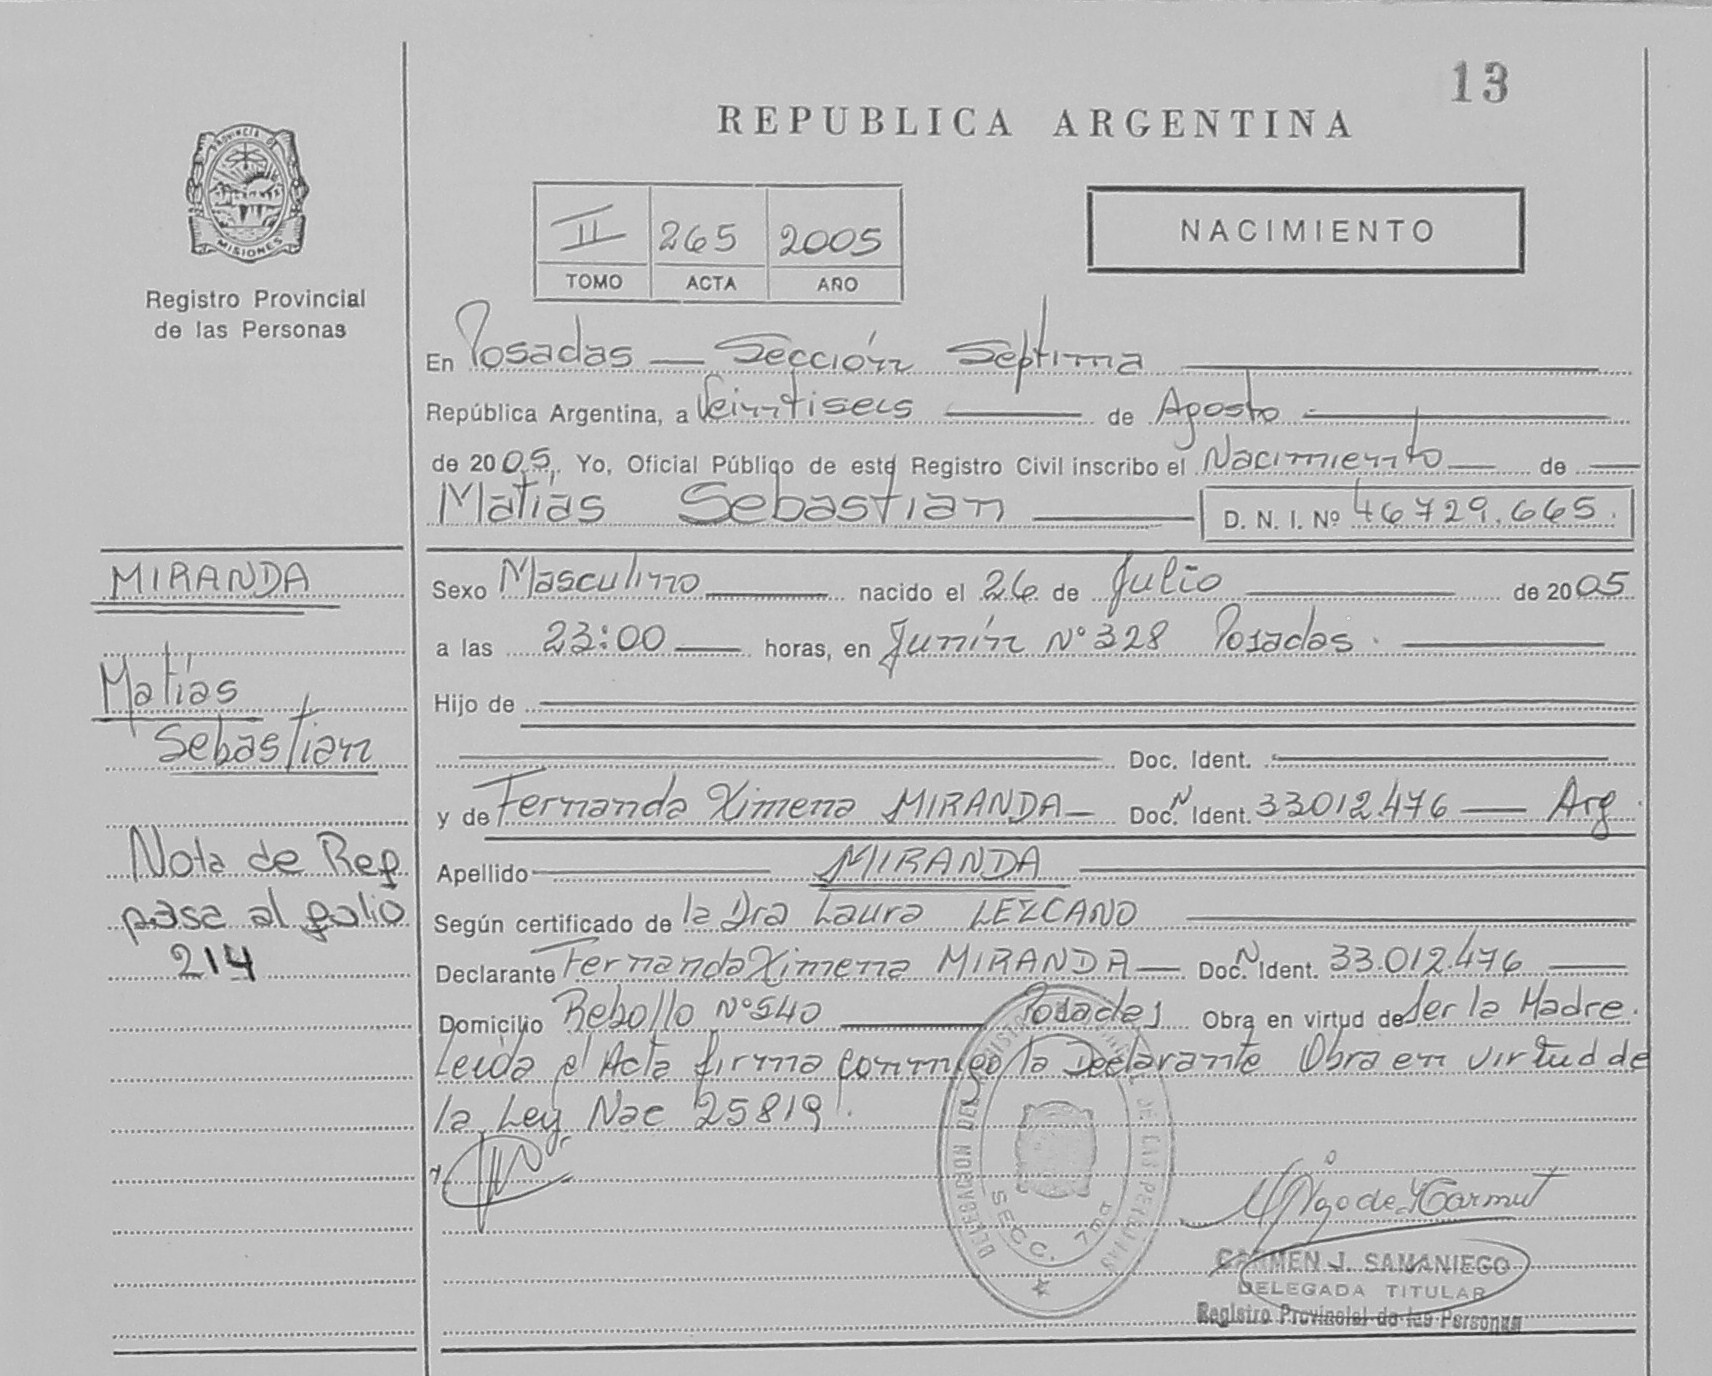 13
REPUBLICA ARGENTINA
PROVINCIA DE
MISIONES
Registro Provincial
de las Personas
II 265 2005
TOMO ACTA AÑO
NACIMIENTO
En Posadas — Sección Septima
República Argentina, a Veintiseis de Agosto
de 2005, Yo, Oficial Público de este Registro Civil inscribo el Nacimiento de
Matías Sebastian D. N. I. Nº 46729.665.
MIRANDA
Matías
Sebastian
Nota de Rep
pasa al folio
214
Sexo Masculino nacido el 26 de Julio de 2005
a las 23:00 horas, en Junín Nº 328 Posadas.
Hijo de
Doc. Ident.
y de Fernanda Ximena MIRANDA — Doc. N Ident. 33012.476 — Arg.
Apellido MIRANDA
Según certificado de la Dra Laura LEZCANO
Declarante Fernanda Ximena MIRANDA — Doc. N Ident. 33.012.476
Domicilio Rebollo Nº 540 Posadas Obra en virtud de Ser la Madre.
Leida el Acta firma conmigo la Declarante Obra en virtud de
la Ley Nac 25819.
DELEGACION DEL DE LAS PERSONAS
SECC. 7
CARMEN J. SAMANIEGO
DELEGADA TITULAR
Registro Provincial de las Personas